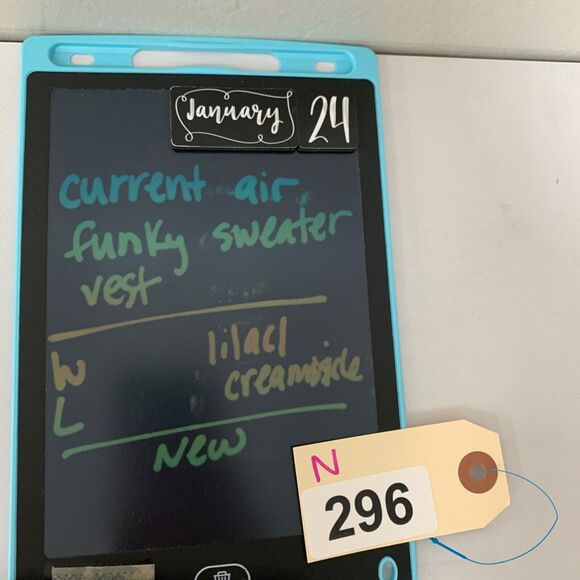 January 24
current air
funky sweater
vest
W lilac/
creamsicle
L
New
N
296